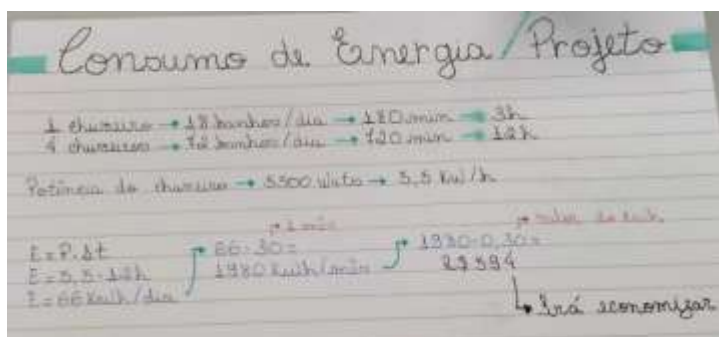 Consumo de Energia / Projeto
1 chuveiro → 18 banhos/dia → 180 min → 3h
4 chuveiros → 72 banhos/dia → 720 min → 12h
Potência do chuveiro → 5500 watts → 5,5 Kw/h
→ 1 mês
→ valor do kwh
E = P.Δt
66.30 =
1980.0,30 =
E = 5,5.12h
1980 Kwh/mês
E = 66 Kwh/dia
↳ Irá economizar